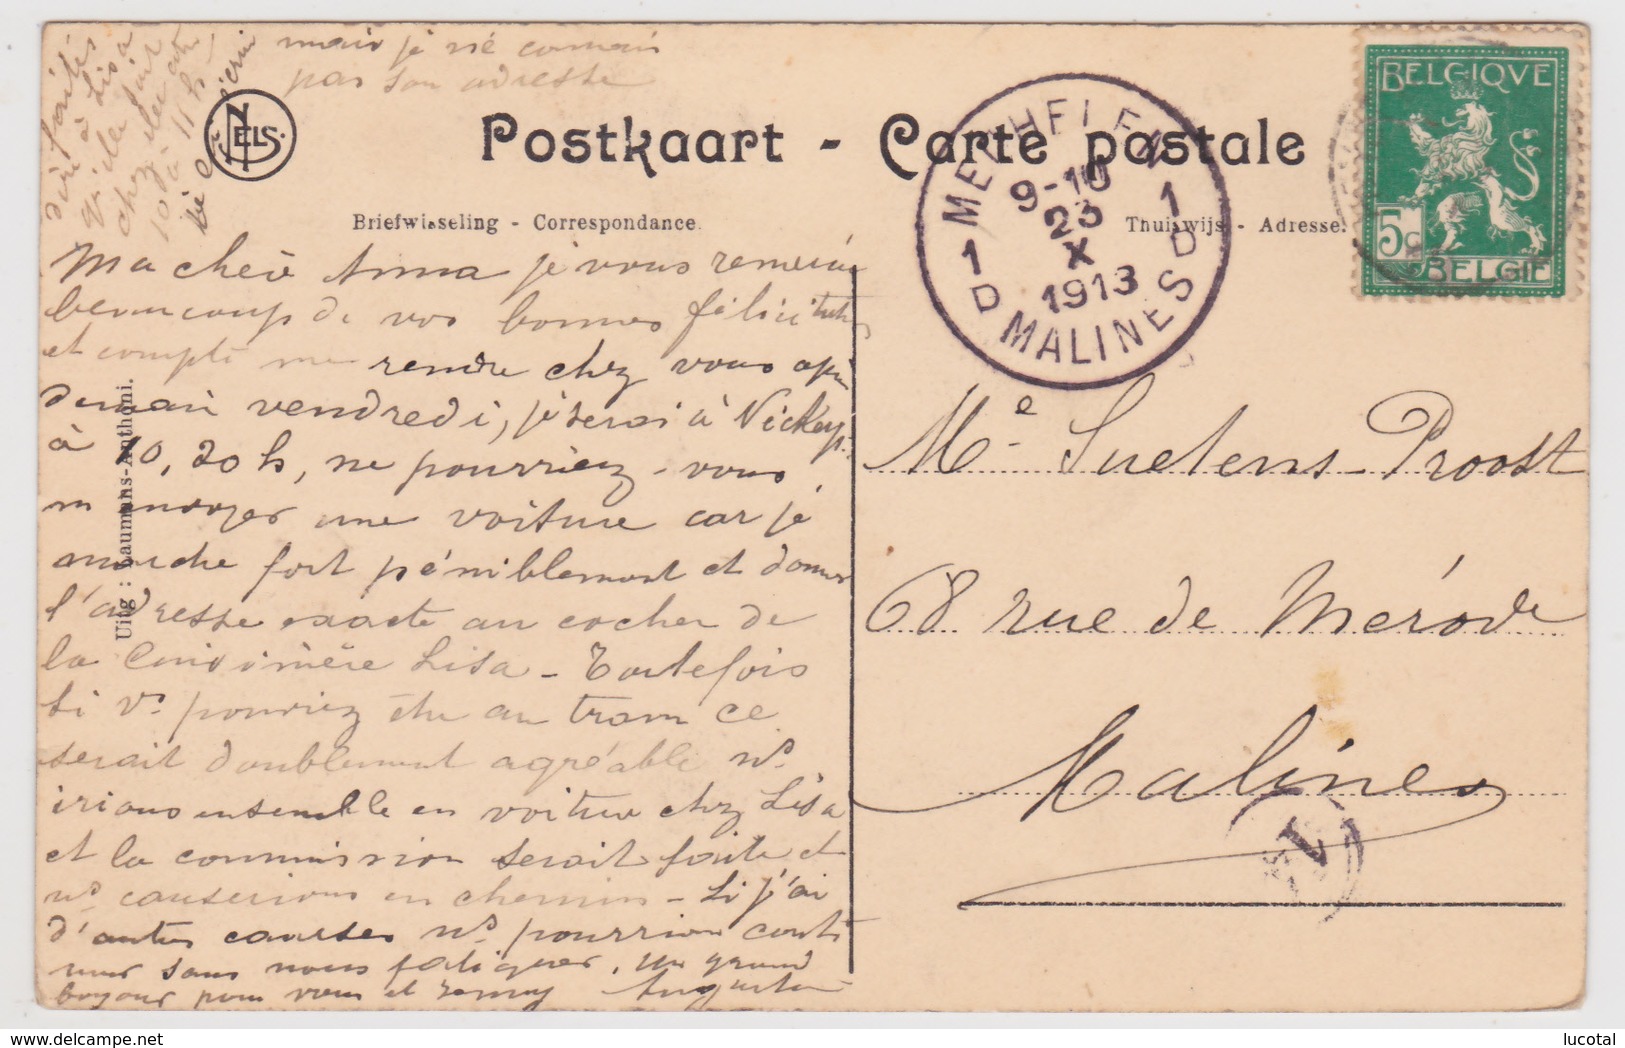 mais je né connais
pas son adresse
dire à Lisa
NELS.
Postkaart - Carte postale
Briefwisseling - Correspondance.
Thuiswijs - Adresse.
MECHELEN
9-10
23
X
1913
1D 1D
MALINES
BELGIQVE
5c
BELGIE
Ma chère Anna je vous remercie
beaucoup de vos bonnes félicitations
et compte me rendre chez vous après
demain vendredi, je serai à
à 10,20 h, ne pourriez-vous
m'envoyer une voiture car je
marche fort péniblement et donner
l'adresse exacte au cocher de
la Cuisinière Lisa - Toutefois
si vs pourriez être au tram ce
serait doublement agréable ns
irions ensemble en voiture chez Lisa
et la commission serait faite et
ns causerions en chemin - si j'ai
d'autres courses ns pourrions conti
nuer sans nous fatiguer. Un grand
bonjour pour vous et Augusta
Uitg : Laumans-Anthoni.
Me Suetens-Proost
68 rue de Mérode
Malines
1
lucotal
www.delcampe.net